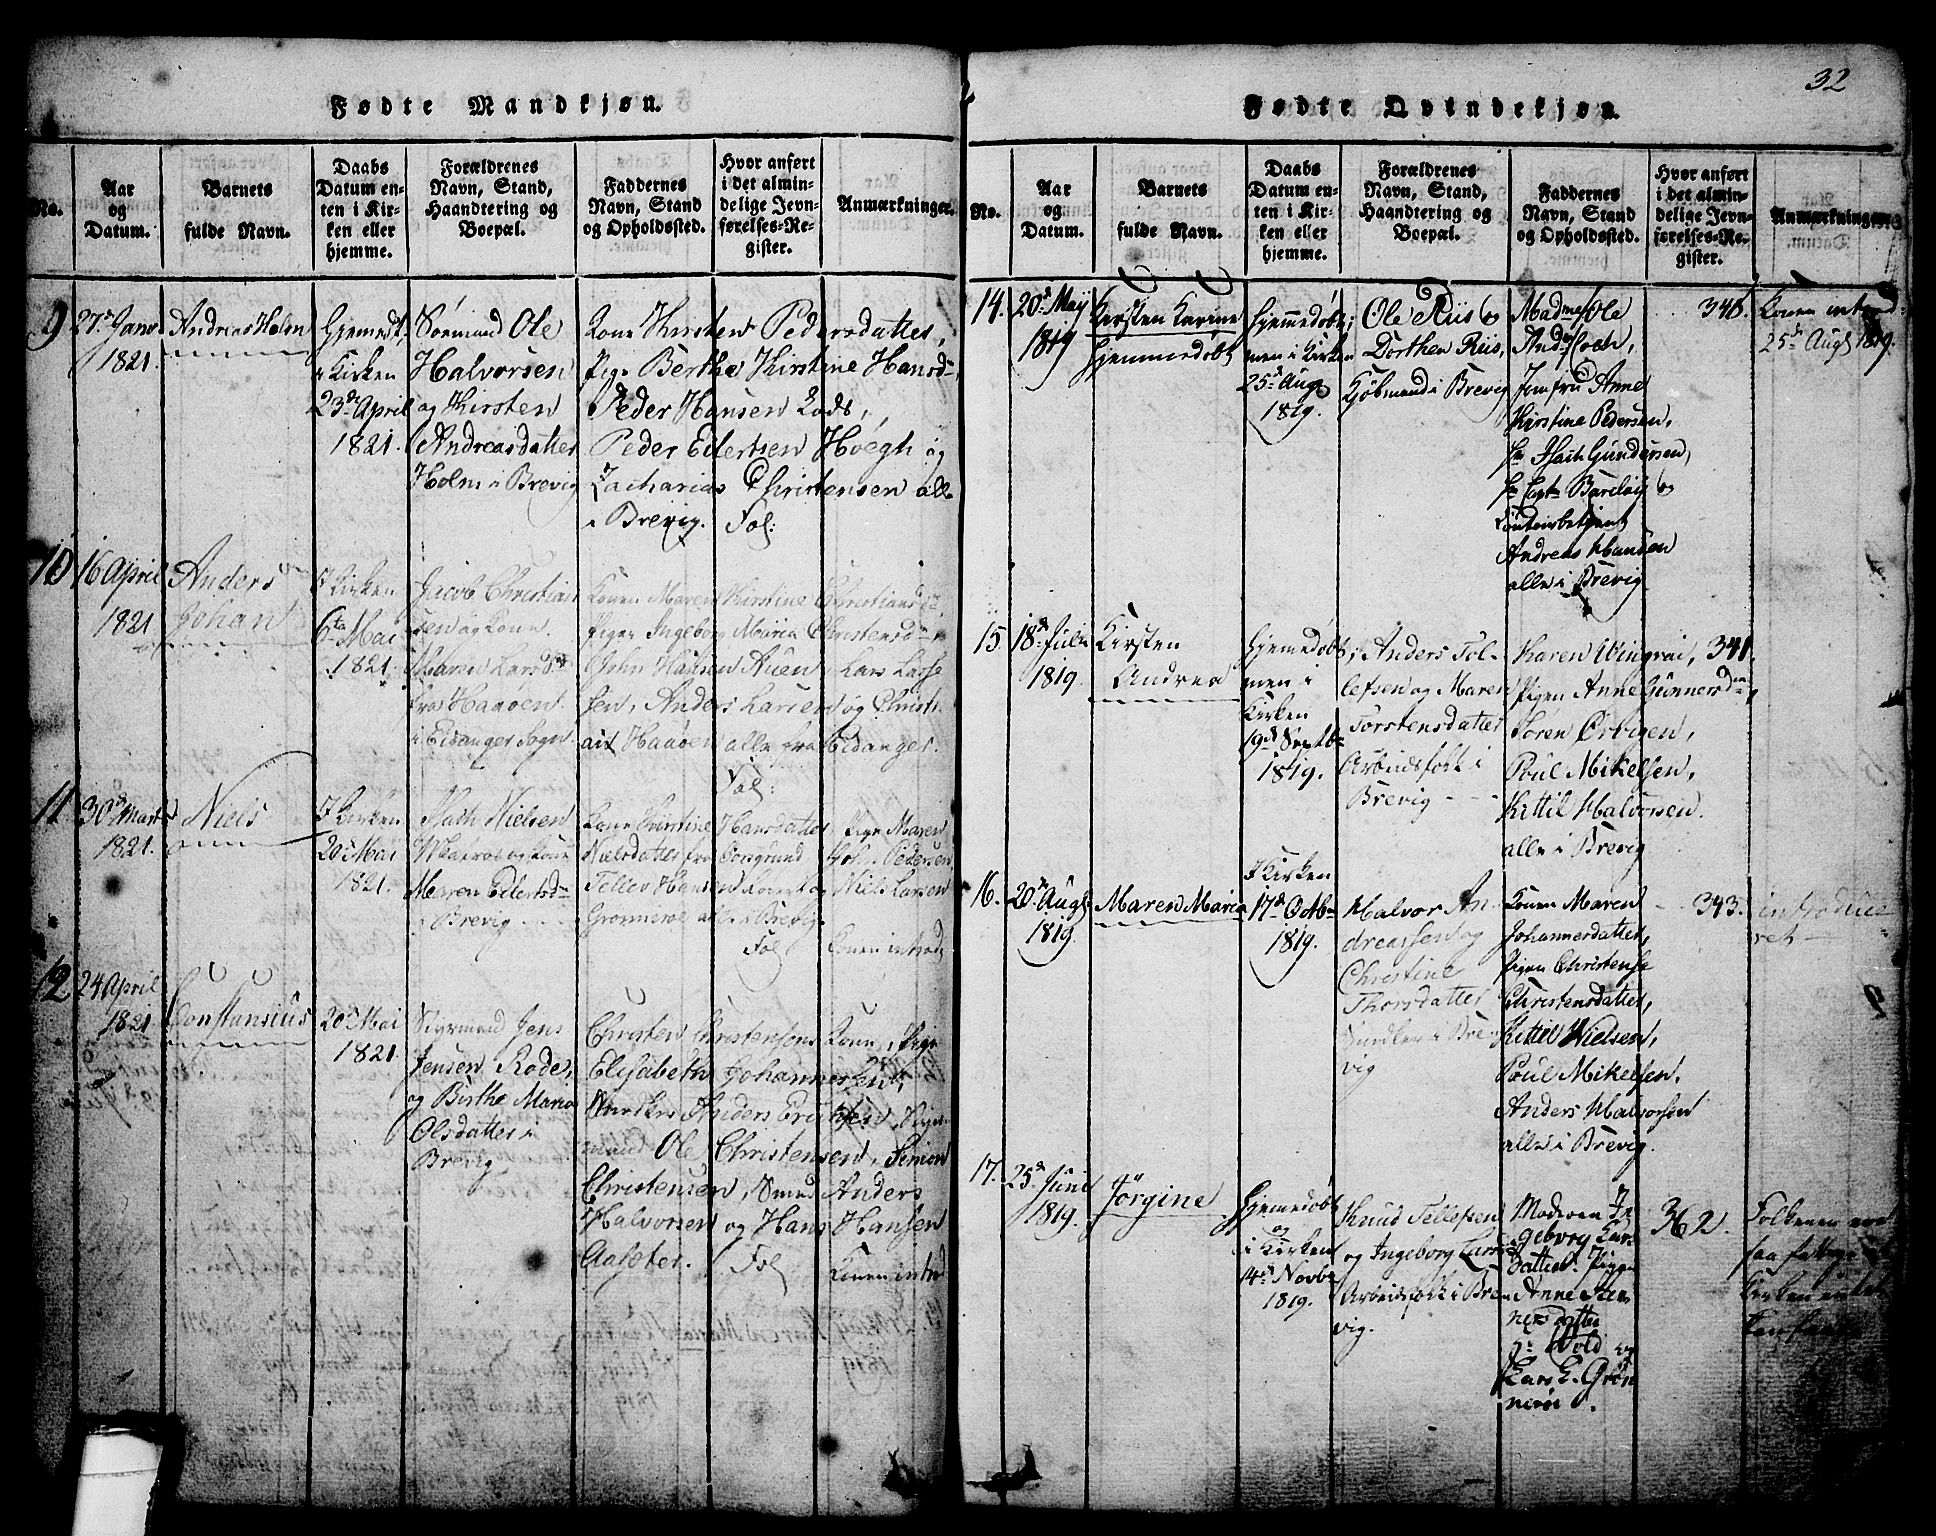 Fødte Mandkjøn.
No.
Aar
og
Datum.
Barnets
fulde Navn.
Daabs
Datum en-
ten i Kir-
ken eller
hjemme.
Forældrenes
Navn, Stand,
Haandtering og
Boepæl.
Faddernes
Navn, Stand
og Opholdssted.
Hvor anført
i det almin-
delige Jevn-
førelses-Re-
gister.
Anmærkninger.
9
27de Janv
1821.
Andreas Holm
Hjemedt,
i Kirken
23de April
1821.
Søemand Ole
Halvorsen
og Kirsten
Andreasdatter
Holm i Brevig
Kone Kirsten Pedersdatter,
Pige Berthe Kirstine Hansd.
Peder Hansen Rode,
Peder Eilertsen Høegh og
Zacharias Christensen alle
i Brevig. Fol:
10
16 April
1821
Anders
Johan
I Kirken
6te Mai
1821.
Jacob Christian
sen og Kone
Maren Larsd.
fra Haaøen
i Eidanger Sogn.
Konen Maren Kirstine Christiansd.
Pigen Ingeborg Maria Christensd.
John Hansen Auen Lars Lasse
sen, Anders Larsen og Christi
an Haaøen alle fra Eidanger.
Fol:
11
30de Marts
1821.
Niels
I Kirken
20de Mai
1821.
Isach Nielsen
Matros og Kone
Maren Eilertsd.
i Brevig
Kone Kirstine Hansdatter Pige Maren
Nielsdatter fra Porsgrund John Pedersen
Tellev Hansen Niels Larsen
Grønnerøe alle i Brevig
Fol Konen introd
12
24 April
1821
Constansius
20de Mai
1821.
Styrmand Jens
Jensen Rode,
og Birthe Maria
Olsdatter i
Brevig
Christen Christensens Kone, Pige
Elisabeth Johannersen,
Snedker Anders Erichsen, Styr-
mand Ole Christensen, Simon
Christensen, Smed Anders
Halvorsen og Hans Hansen
Aasæter. Fol
Konen introd
32
Fødte Qvindekjøn.
No.
Aar
og
Datum.
Barnets
fulde Navn.
Daabs
Datum en-
ten i Kir-
ken eller
hjemme.
Forældrenes
Navn, Stand,
Haandtering og
Boepæl.
Faddernes
Navn, Stand
og Opholdssted.
Hvor anført
i det almin-
delige Jevn-
førelses-Re-
gister.
Anmærkninger.
14.
20de May
1819
Kirsten Karine
hjemmedøbt
Hjemmedøbt;
men i Kirken
25de Aug
1819.
Ole Riis &
Dorthea Riis,
Kjøbmand i Brevig
Madme Ole
And: Coch,
Jomfru Anne
Kirstine Pedersen,
Hr Isach Gundersen,
Hr Capt: Barclay &
Andreas Hansen
alle i Brevig
340.
Konen introd:
25de Augt 1819.
15.
18de Julii
1819.
Kirsten
Andrea
Hjemedøbt;
men i
Kirken
19de Septbr
1819.
Anders Tol-
lefsen og Maren
Torstensdatter
Arbeidsfolk i
Brevig
Karen Wingrai,
Pigen Anne Gunnersd.
Søren Ørvigen,
Poul Mikelsen,
Kittil Halvorsen.
alle i Brevig
341.
16.
20de Augt
1819.
Maren Maria
I Kirken
17de Octbr
1819.
Halvor An-
dreassen og
Christine
Thorsdatter
i Bre
vig
Konen Maren
Johannersdatter,
Pigen Christense
Christensdatter,
Kittil Nielsen,
Poul Mikelsen,
Anders Halvorsen
alle i Brevig.
343.
introduce
ret
17.
25de Junii
1819.
Jørgine
Hjemedøbt
og
i Kirken
14de Novbr
1819.
Knud Tellefsen
og Ingeborg Lars
Arbeidsfolk i Bre
vig.
Moderen In
geborg Lars
datter. Pigen
Anne Ste
nersdatter
Wold og
Lars E. Grøn
nerøe
362.
Folkene ere
saa fattige at